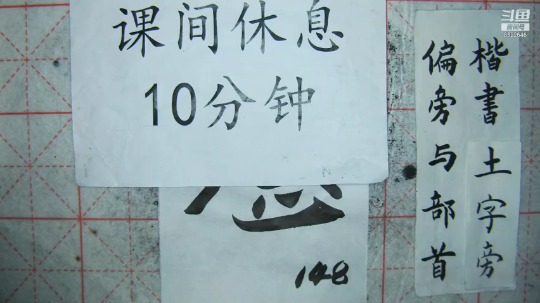 课间休息
10分钟
148
楷書 土字旁
偏旁与部首
斗鱼